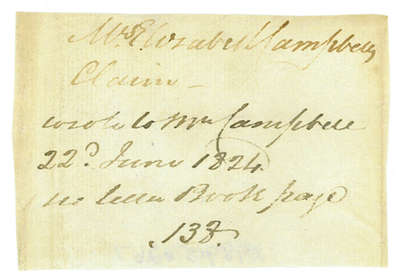 Mrs Elizabeth Campbells
Claim —
wrote to Mrs Campbell
22d. June 1824.
see letter Book page
138.